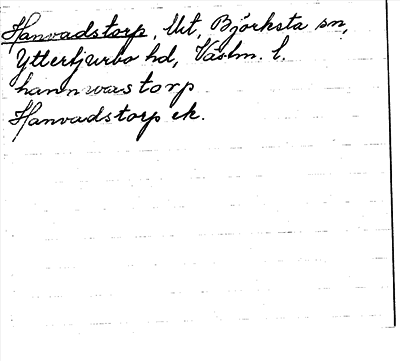 Hanvadstorp, Ut, Björksta sn,
Ytterbjurbo hd, Västm. l.
hannwastorp
Hanvadstorp ek.